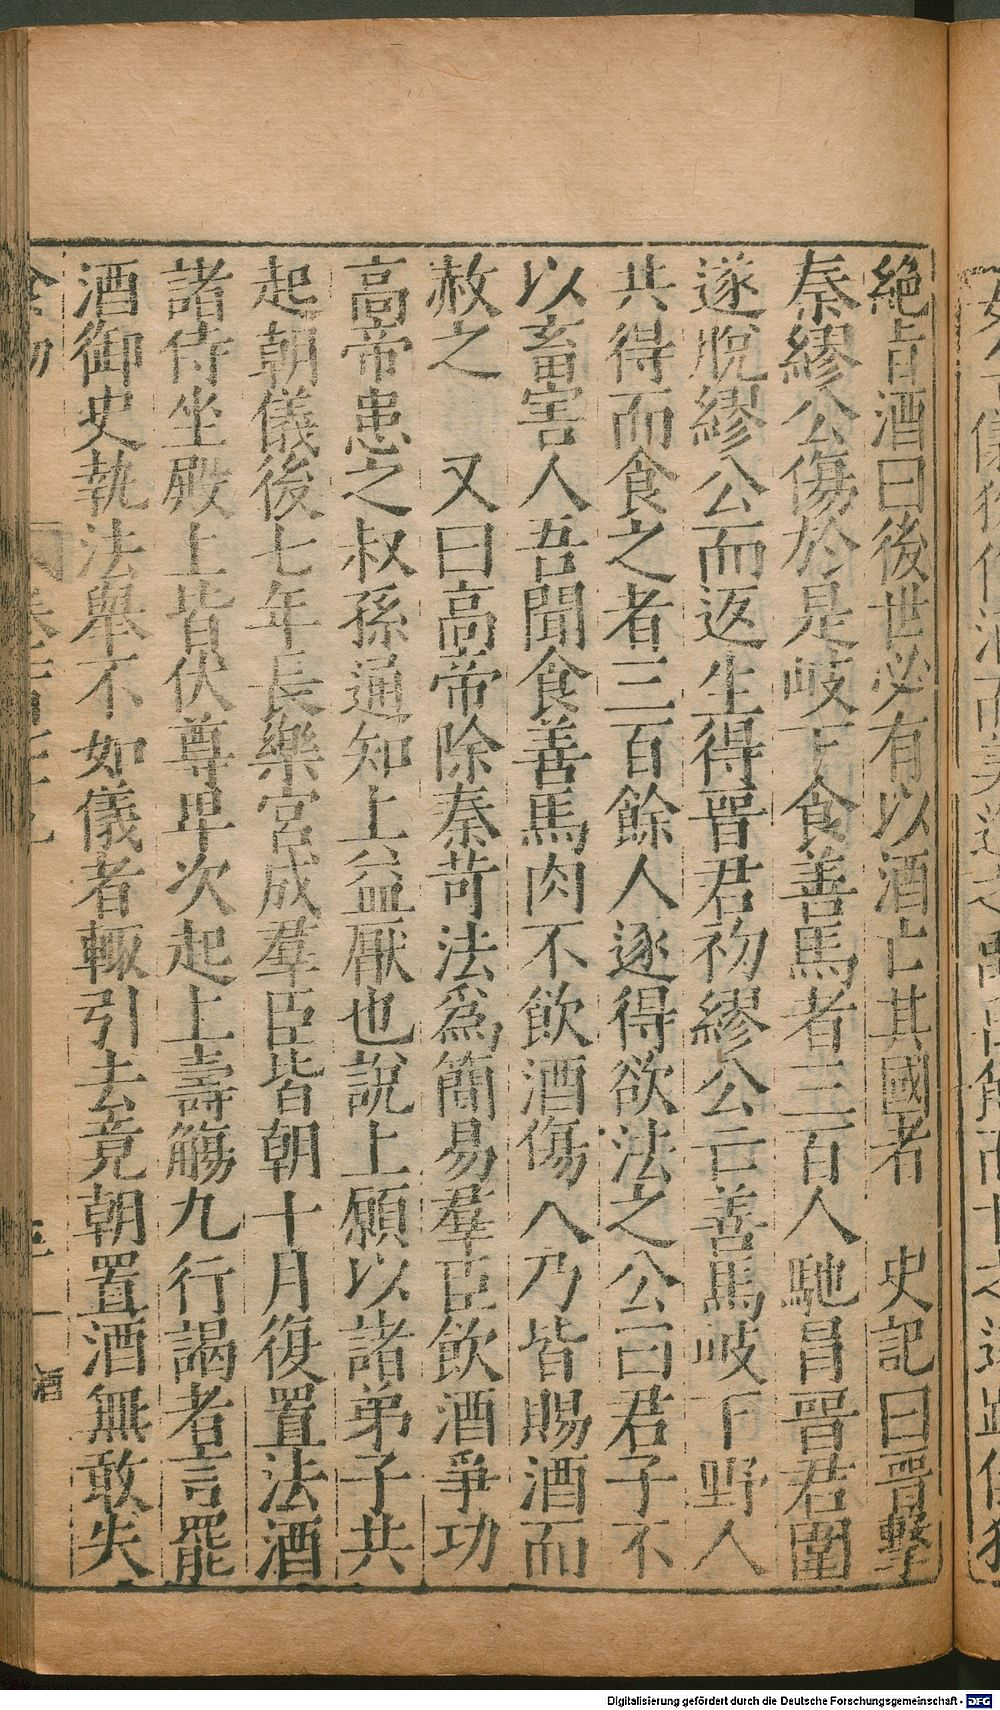 絶旨酒曰後世必有以酒亡其國者　史記曰晉擊
秦繆公傷於是岐下食善馬者三百人馳冒晉君圍
遂脫繆公而返生得晉君初繆公亡善馬岐下野人
共得而食之者三百餘人逐得欲法之公曰君子不
以畜害人吾聞食善馬肉不飲酒傷人乃皆賜酒而
赦之　又曰高帝除秦苛法爲簡易羣臣飲酒爭功
高帝患之叔孫通知上益厭也說上願以諸弟子共
起朝儀後七年長樂宮成羣臣皆朝十月復置法酒
諸侍坐殿上皆伏尊卑次起上壽觴九行謁者言罷
酒御史執法舉不如儀者輙引去竟朝置酒無敢失
酒
Digitalisierung gefördert durch die Deutsche Forschungsgemeinschaft - DFG